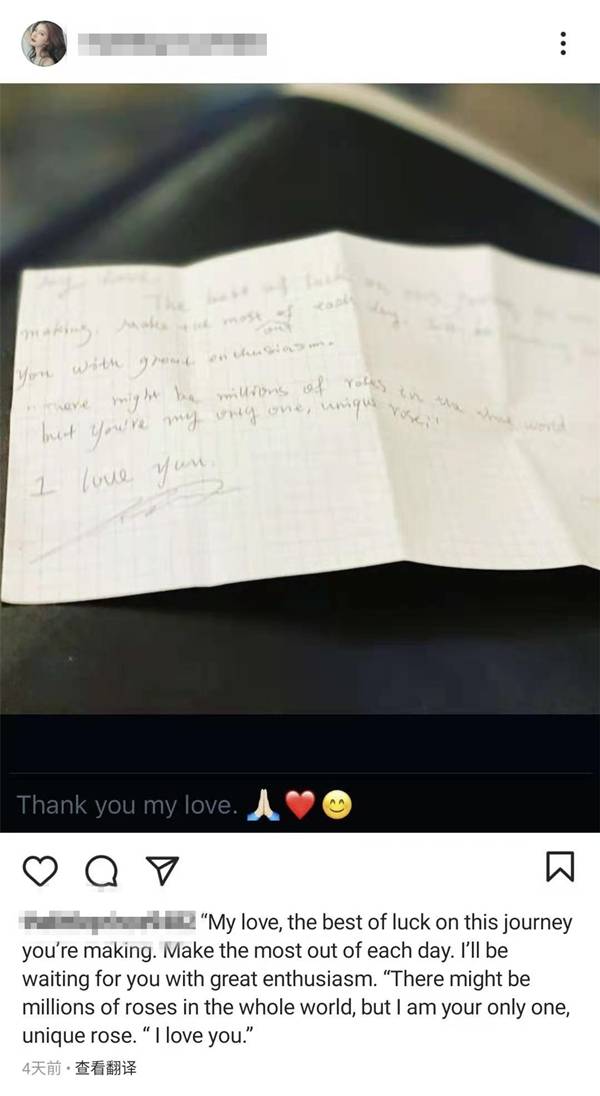 The best of luck on
making. Make the most of each day.
out
You with great enthusiasm.
There might be millions of roses in the whole world
but you're my only one, unique rose."
I love you.
Thank you my love. 🙏🏻❤️😊
“My love, the best of luck on this journey
you’re making. Make the most out of each day. I’ll be
waiting for you with great enthusiasm. “There might be
millions of roses in the whole world, but I am your only one,
unique rose. “ I love you.”
4天前 · 查看翻译